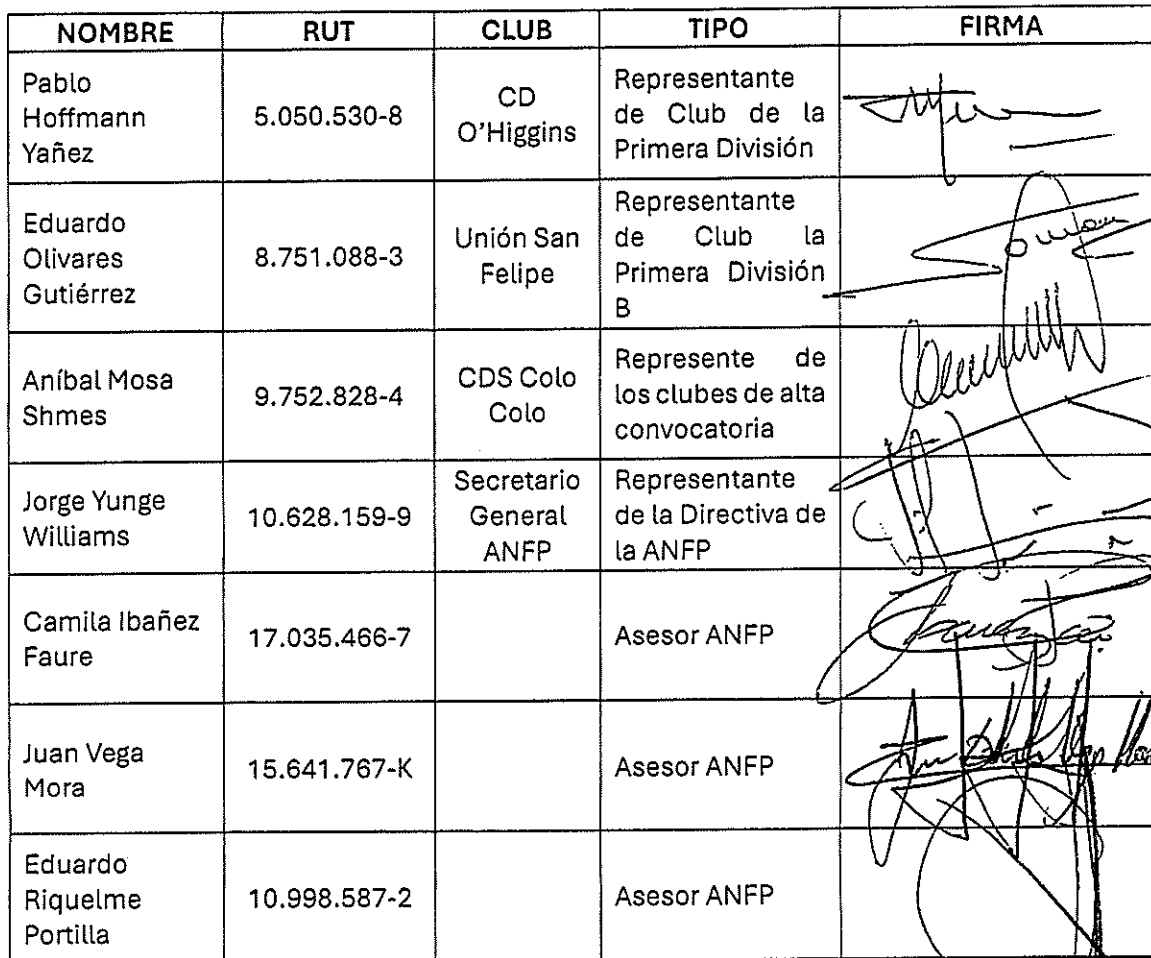 NOMBRE RUT CLUB TIPO FIRMA
Pablo
Hoffmann
Yañez
5.050.530-8
CD
O'Higgins
Representante
de Club de la
Primera División
Eduardo
Olivares
Gutiérrez
8.751.088-3
Unión San
Felipe
Representante
de Club la
Primera División
B
Aníbal Mosa
Shmes
9.752.828-4
CDS Colo
Colo
Represente de
los clubes de alta
convocatoria
Jorge Yunge
Williams
10.628.159-9
Secretario
General
ANFP
Representante
de la Directiva de
la ANFP
Camila Ibañez
Faure
17.035.466-7
Asesor ANFP
Juan Vega
Mora
15.641.767-K
Asesor ANFP
Eduardo
Riquelme
Portilla
10.998.587-2
Asesor ANFP